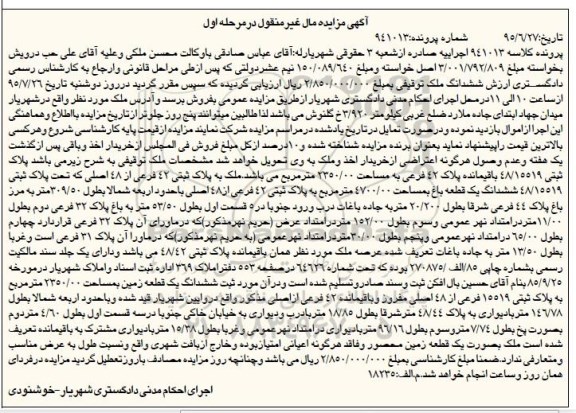 آگهی مزایده مال غیرمنقول در مرحله اول
تاریخ:۹۵/۶/۲۷ شماره پرونده:۹۴۱۰۱۳
پرونده کلاسه ۹۴۱۰۱۳ اجراییه صادره ازشعبه ۳ حقوقی شهریارله:آقای عباس صادقی باوکالت محسن ملکی وعلیه آقای علی حب درویش
بخواسته مبلغ ۳/۰۰۱/۷۹۲/۸۰۹ اصل خواسته ومبلغ ۱۵۰/۰۸۹/۶۴۰ نیم عشردولتی که پس ازطی مراحل قانونی وارجاع به کارشناس رسمی
دادگستری ارزش ششدانگ ملک توقیفی بمبلغ ۲/۸۵۰/۰۰۰/۰۰۰ ریال ارزیابی گردیده که سپس مقرر گردید درروز دوشنبه تاریخ ۹۵/۷/۲۶
ازساعت ۱۰ الی ۱۱ درمحل اجرای احکام مدنی دادگستری شهریار ازطریق مزایده عمومی بفروش برسد و آدرس ملک مورد نظر واقع درشهریار
میدان جهاد ابتدای جاده ملارد ضلع غربی کیلومتر ۳/۹۲۰ خ گلنوش می باشد لذا طالبین میتوانند پنج روز جلوتر ازتاریخ مزایده بااطلاع وهماهنگی
این اجرا ازاموال بازدید نموده ودرصورت تمایل درتاریخ یادشده درمراسم مزایده شرکت نمایند مزایده ازقیمت پایه کارشناسی شروع وهرکسی
بالاترین قیمت راپیشنهاد نماید بعنوان برنده مزایده شناخته شده و۱۰درصد ازکل مبلغ فروش فی المجلس ازخریدار اخذ وباقی پس ازگذشت
یک هفته وعدم وصول هرگونه اعتراضی ازخریدار اخذ وملک به وی تحویل خواهد شد مشخصات ملک توقیفی به شرح زیرمی باشد پلاک
ثبتی ۴۸/۱۵۵۱۹ باقیمانده پلاک ۴۲ فرعی به مساحت ۲۳۵۰/۰۰ مترمربع می باشد.ملک به پلاک ثبتی ۴۲ فرعی از ۴۸ اصلی که تحت پلاک ثبتی
۴۸/۱۵۵۱۹ ششدانگ یک قطعه باغ بمساحت ۴۷۰۰/۰۰ مترمربع به پلاک ثبتی ۴۲فرعی از۴۸اصلی باحدود اربعه شمالا بطول ۳۰۹/۵۰ متر به مرز
باغ پلاک ۴۴ فرعی شرقا بطول ۲۰/۲۰ متربه جاده باغات درب ورود جنوبا در۵ قسمت اول بطول ۵۳/۵۰ متر به باغ پلاک ۳۲ فرعی دوم بطول
۱۱/۰۰متردرامتداد نهر عمومی وسوم بطول ۱۵۲/۰۰ متردرامتداد عرض (حریم نهرمذکور)که درماورای آن پلاک ۳۲ فرعی قراردارد چهارم
بطول ۶۵/۰۰ درامتداد نهرعمومی وپنجم بطول ۳۰/۰۰متردرامتداد نهرعمومی (به حریم نهرمذکور)که درماورا آن پلاک ۳۱ فرعی است وغربا
بطول ۱۳/۵۰ متر به جاده باغات تعریف شده عرصه ملک مورد نظر همان باقیمانده پلاک ثبتی ۴۸/۴۲ می باشد ودارای یک جلد سند مالکیت
رسمی بشماره چاپی ۸۵/الف ۲۷۰۸۷۵ بوده که تحت شماره ۶۴۶۳۹ درصفحه ۵۵۳ دفتراملاک ۳۶۹ اداره ثبت اسناد واملاک شهریار درمورخه
۸۵/۹/۲۵ بنام آقای حسین بال افکن ثبت وسند صادروتسلیم شده است ودرآن مورد ثبت ششدانگ یک قطعه زمین بمساحت ۲۳۵۰/۰۰ مترمربع
به پلاک ثبتی ۱۵۵۱۹ فرعی از ۴۸ اصلی مفروز ازباقیمانده ۴۲ فرعی ازاصلی مذکور واقع دروایین شهریار قید شده وباحدود اربعه شمالا بطول
۱۴۶/۷۸ متردیواری به پلاک ۴۸/۴۴ شرقا بطول ۱۸/۸۵ متربادرب ودیواری به خیابان خاکی جنوبا درسه قسمت اول بطول ۴/۶۰ متردوم
بصورت پخ بطول ۷/۷۴ متروسوم بطول ۹۶/۱۶ متربادیواری درامتداد نهرعمومی وغربا بطول ۱۵/۳۸ متردیواری مشترک به باقیمانده تعریف
شده است ملک بصورت یک قطعه زمین محصور وفاقد هرگونه اعیانی امتیازبوده وخارج ازبافت شهری واقع ونسبت طول به عرض مناسب
ومتعارفی ندارد.ضمنا مبلغ کارشناسی بمبلغ ۲/۸۵۰/۰۰۰/۰۰۰ ریال می باشد وچنانچه روز مزایده مصادف باروزتعطیل گردید مزایده درفردای
همان روز وساعت انجام خواهد شد.م.الف:۱۸۲۳۵
اجرای احکام مدنی دادگستری شهریار-خوشنودی